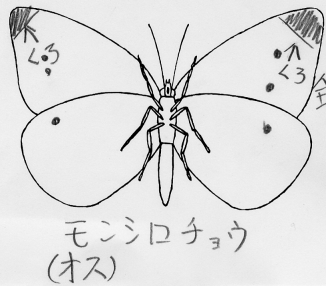 くろ
くろ
モンシロチョウ
(オス)